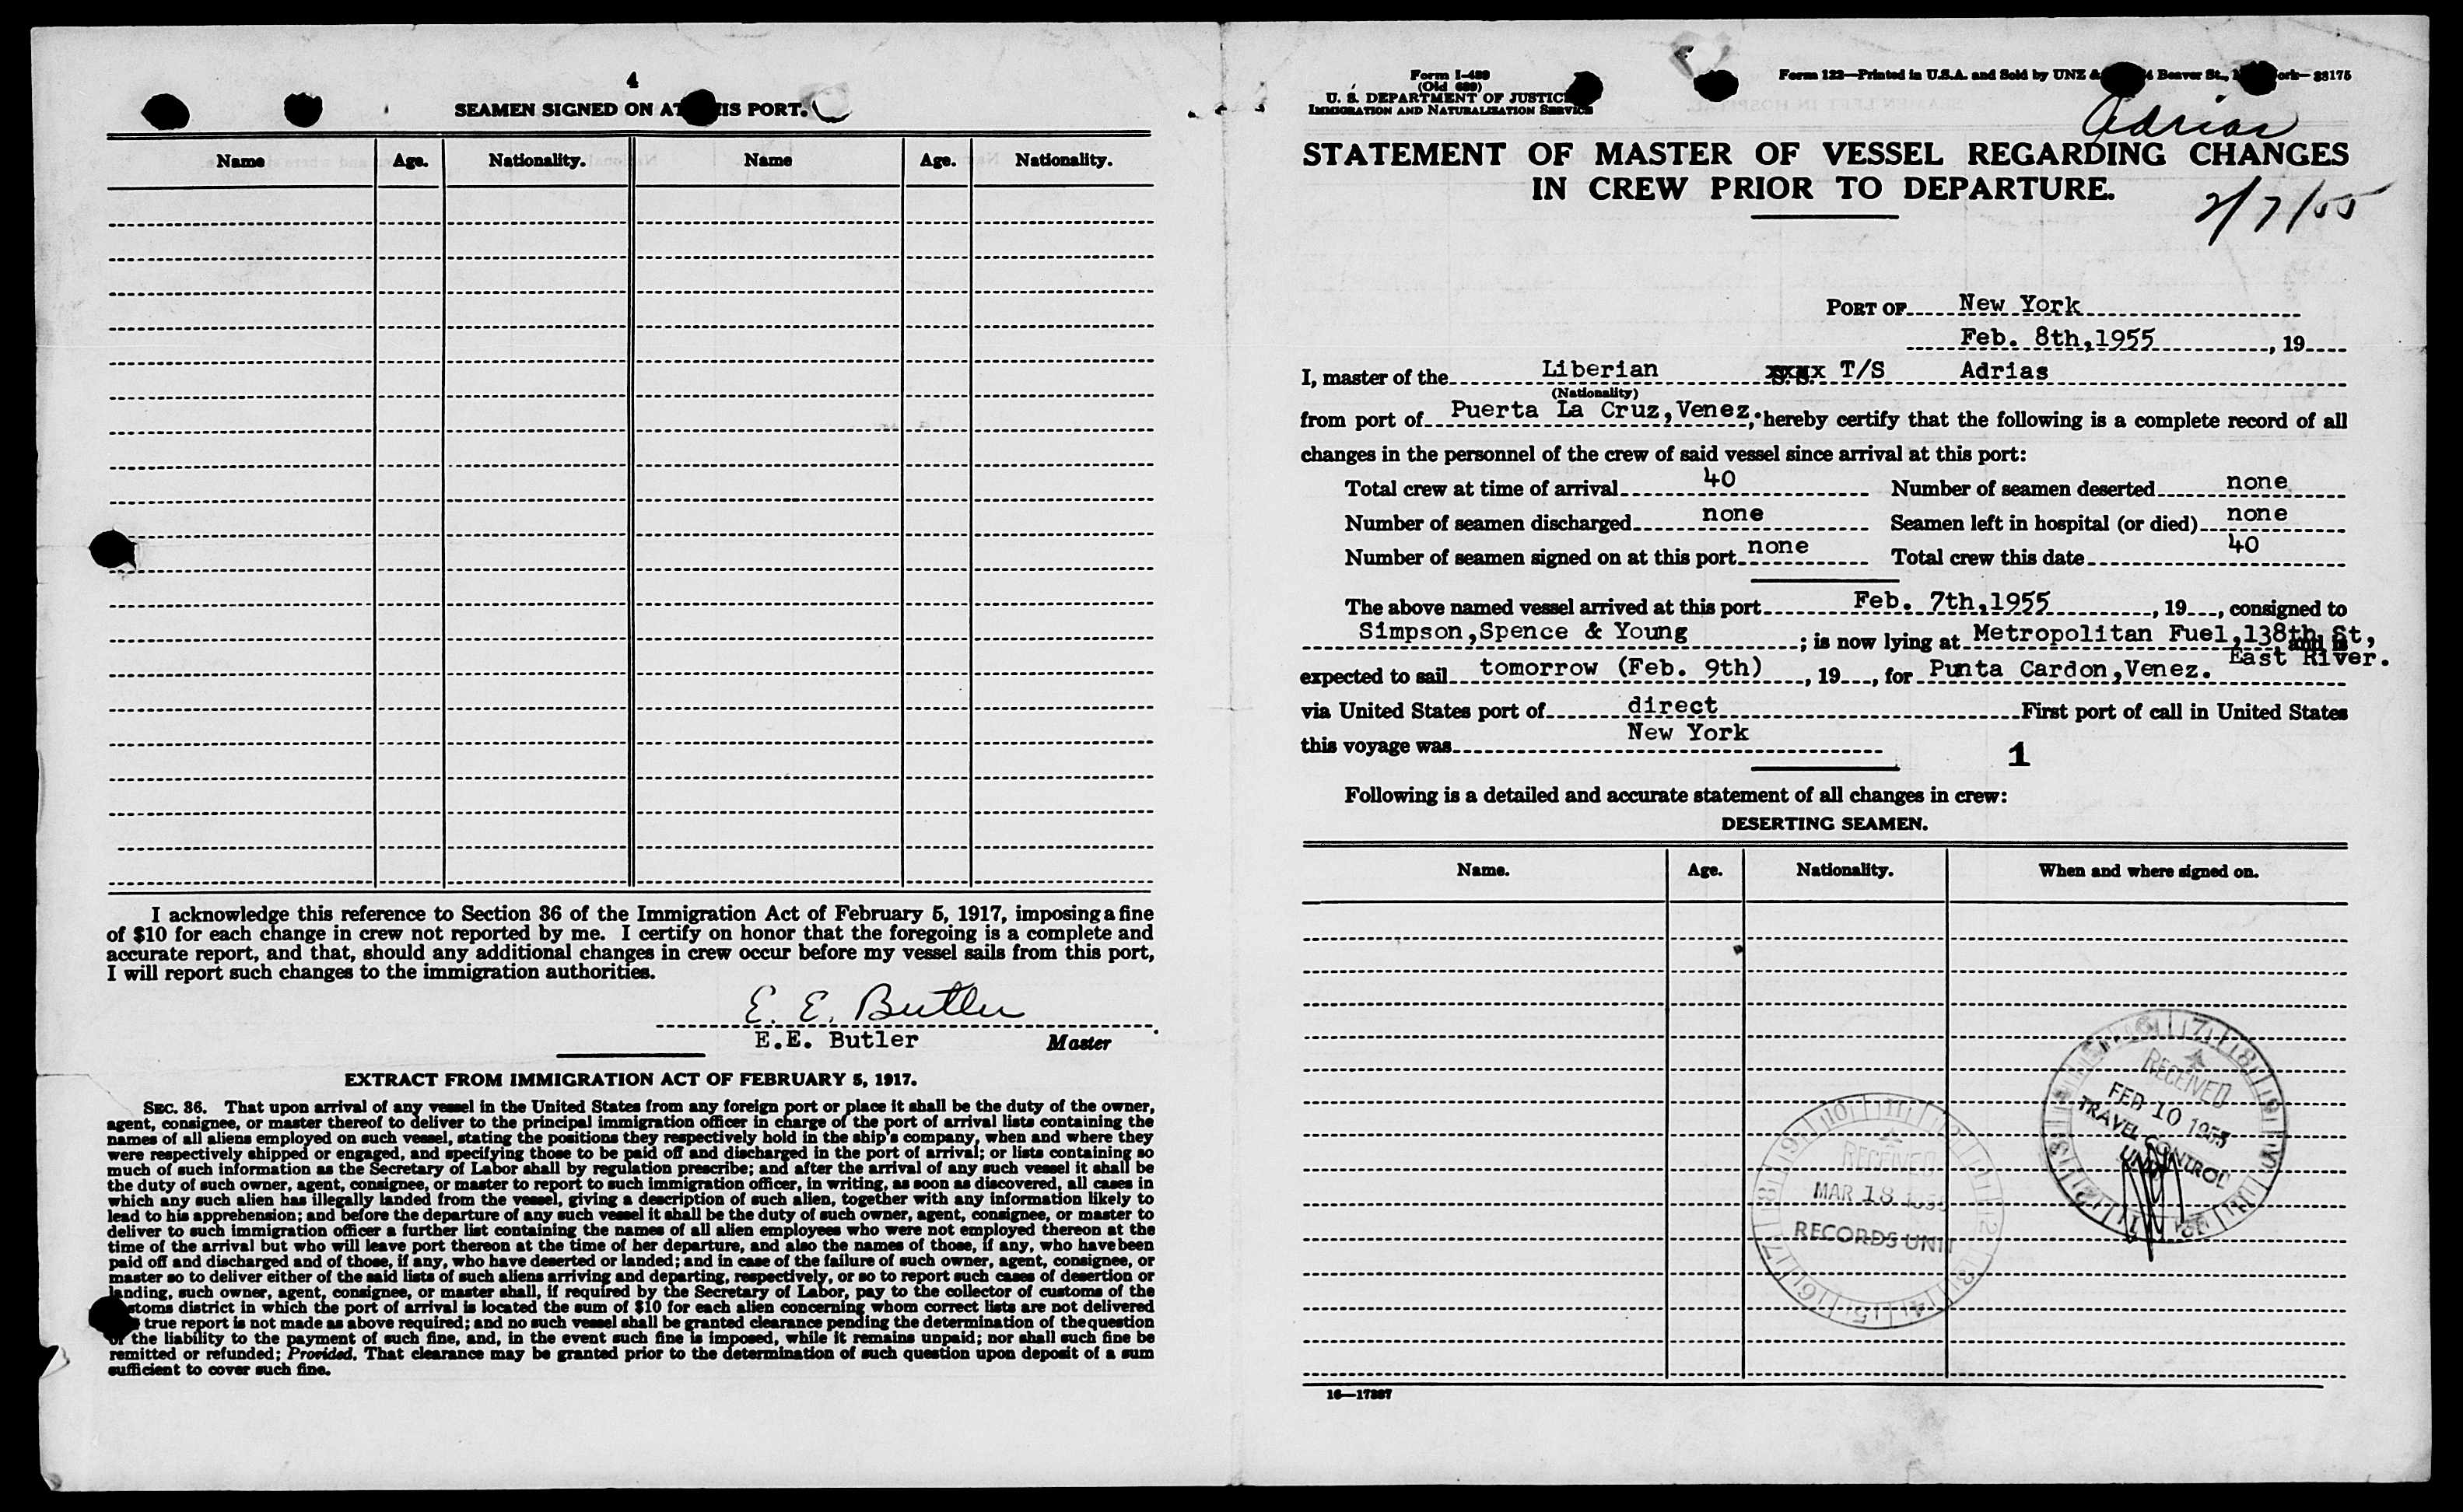 4
SEAMEN SIGNED ON AT THIS PORT.
Name Age. Nationality. Name Age. Nationality.
I acknowledge this reference to Section 36 of the Immigration Act of February 5, 1917, imposing a fine
of $10 for each change in crew not reported by me. I certify on honor that the foregoing is a complete and
accurate report, and that, should any additional changes in crew occur before my vessel sails from this port,
I will report such changes to the immigration authorities.
E. E. Butler
E.E. Butler Master
EXTRACT FROM IMMIGRATION ACT OF FEBRUARY 5, 1917.
SEC. 36. That upon arrival of any vessel in the United States from any foreign port or place it shall be the duty of the owner,
agent, consignee, or master thereof to deliver to the principal immigration officer in charge of the port of arrival lists containing the
names of all aliens employed on such vessel, stating the positions they respectively hold in the ship's company, when and where they
were respectively shipped or engaged, and specifying those to be paid off and discharged in the port of arrival; or lists containing so
much of such information as the Secretary of Labor shall by regulation prescribe; and after the arrival of any such vessel it shall be
the duty of such owner, agent, consignee, or master to report to such immigration officer, in writing, as soon as discovered, all cases in
which any such alien has illegally landed from the vessel, giving a description of such alien, together with any information likely to
lead to his apprehension; and before the departure of any such vessel it shall be the duty of such owner, agent, consignee, or master to
deliver to such immigration officer a further list containing the names of all alien employees who were not employed thereon at the
time of the arrival but who will leave port thereon at the time of her departure, and also the names of those, if any, who have been
paid off and discharged and of those, if any, who have deserted or landed; and in case of the failure of such owner, agent, consignee, or
master so to deliver either of the said lists of such aliens arriving and departing, respectively, or so to report such cases of desertion or
landing, such owner, agent, consignee, or master shall, if required by the Secretary of Labor, pay to the collector of customs of the
customs district in which the port of arrival is located the sum of $10 for each alien concerning whom correct lists are not delivered
true report is not made as above required; and no such vessel shall be granted clearance pending the determination of the question
of the liability to the payment of such fine, and, in the event such fine is imposed, while it remains unpaid; nor shall such fine be
remitted or refunded; Provided, That clearance may be granted prior to the determination of such question upon deposit of a sum
sufficient to cover such fine.
Form I-489
(Old 689)
U. S. DEPARTMENT OF JUSTICE
IMMIGRATION AND NATURALIZATION SERVICE
Form 122—Printed in U.S.A. and Sold by UNZ & Beaver St., ork—38175
Adrias
STATEMENT OF MASTER OF VESSEL REGARDING CHANGES
IN CREW PRIOR TO DEPARTURE.
2/7/55
PORT OF New York
Feb. 8th,1955, 19
I, master of the Liberian T/S Adrias
(Nationality)
from port of Puerta La Cruz,Venez., hereby certify that the following is a complete record of all
changes in the personnel of the crew of said vessel since arrival at this port:
Total crew at time of arrival 40 Number of seamen deserted none
Number of seamen discharged none Seamen left in hospital (or died) none
Number of seamen signed on at this port none Total crew this date 40
The above named vessel arrived at this port Feb. 7th,1955, 19, consigned to
Simpson,Spence & Young; is now lying at Metropolitan Fuel,138th St, and is
East River.
expected to sail tomorrow (Feb. 9th), 19, for Punta Cardon,Venez.
via United States port of direct First port of call in United States
this voyage was New York
1
Following is a detailed and accurate statement of all changes in crew:
DESERTING SEAMEN.
Name. Age. Nationality. When and where signed on.
RECEIVED
FEB 10 1955
TRAVEL CONTROL
UNIT
RECEIVED
MAR 18 1955
RECORDS UNIT
16—17387